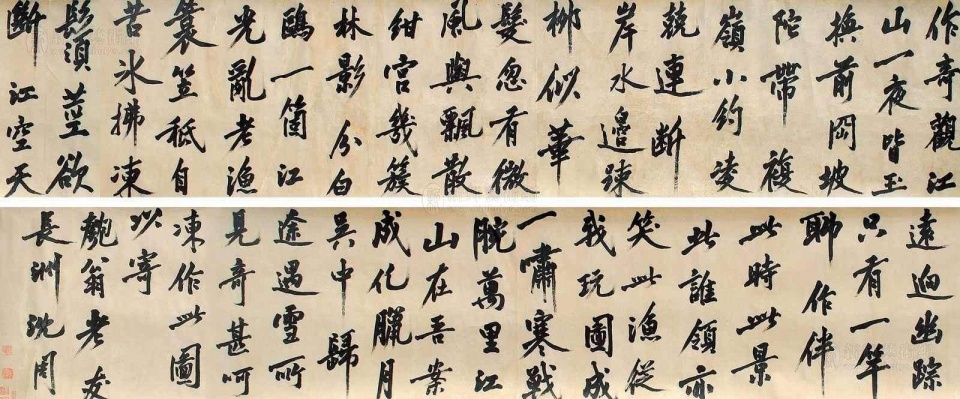 作奇觀江
山一夜皆玉
換前岡坡
陀帶複
嶺小約凌
兢連斷
岸水邊踈
柳似華
髮忽有微
風與飄散
紺宮幾簇
林影分白
鷗一箇江
光亂老漁
蓑笠秪自
苦氷拂凍
鬚頭莖欲
斷江空天
遠迥幽踪
只有一竿
聊作伴
此時此景
此誰領亦
笑此漁從
我玩圖成
一嘯寒戰
腕萬里江
山在吾案
成化臘月
吳中歸
途遇雪所
見奇甚呵
凍作此圖
以寄
匏翁老友
長洲沈周